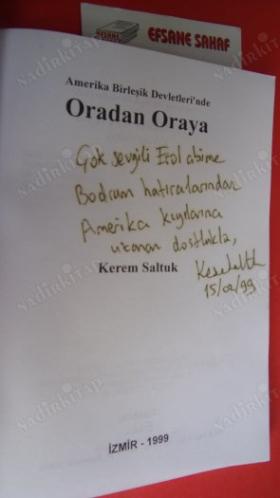 EFSANE SAHAF
Amerika Birleşik Devletleri'nde
Oradan Oraya
Çok sevgili Erol abime
Bodrum hatıralarından
Amerika kıyılarına
uzanan dostlukla,
Kerem Saltuk
15/02/99
İZMİR - 1999
nadirkitap